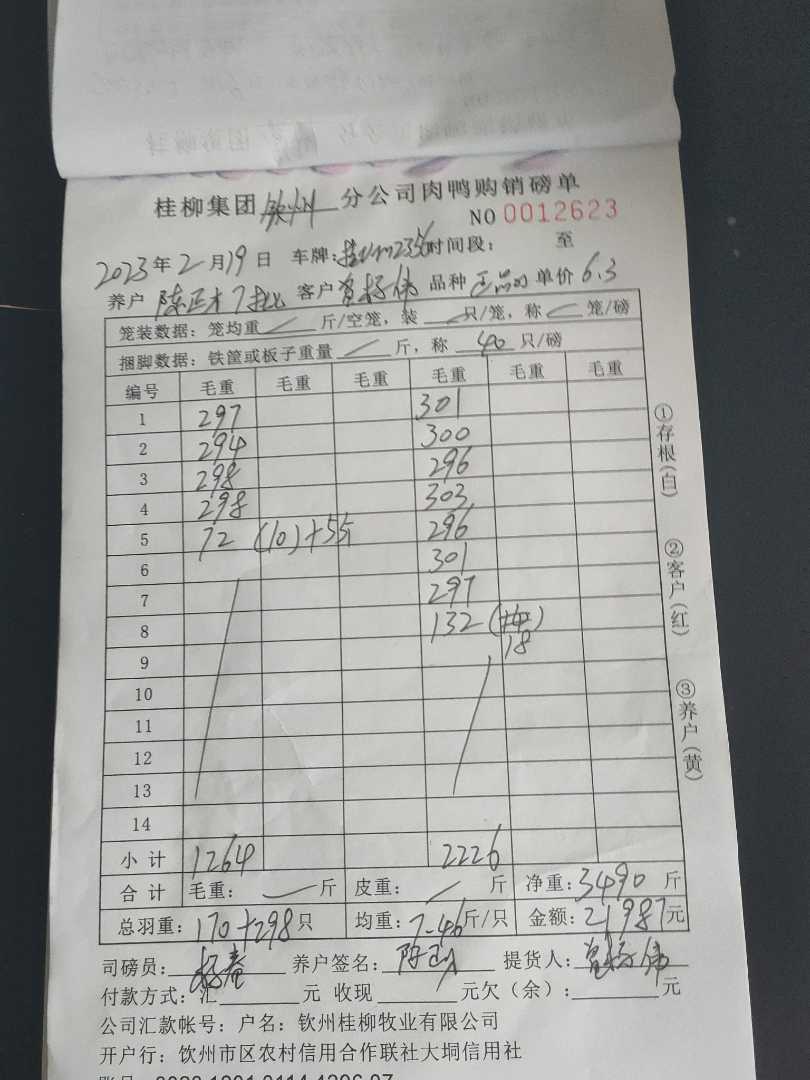 桂柳集团 钦州 分公司肉鸭购销磅单
NO 0012623
2023年2月19日 车牌: 时间段: 至
养户 陈正才7批 客户 曾杨伟 品种 正品 单价 6.3
笼装数据：笼均重 斤/空笼，装 只/笼，称 笼/磅
捆脚数据：铁筐或板子重量 斤，称 40 只/磅
编号 毛重 毛重 毛重 毛重 毛重 毛重
1 297 301
2 294 300
3 298 296
4 298 303
5 72 (10)+55 296
6 301
7 297
8 132
9 18
10
11
12
13
14
小计 1264 2226
合计 毛重: 斤 皮重: 斤 净重: 3490 斤
总羽重: 170+298只 均重: 7.46斤/只 金额: 21987元
司磅员: 养户签名: 提货人: 曾杨伟
付款方式: 汇 元 收现 元欠（余）: 元
公司汇款帐号：户名：钦州桂柳牧业有限公司
开户行：钦州市区农村信用合作联社大垌信用社
①存根(白)
②客户(红)
③养户(黄)